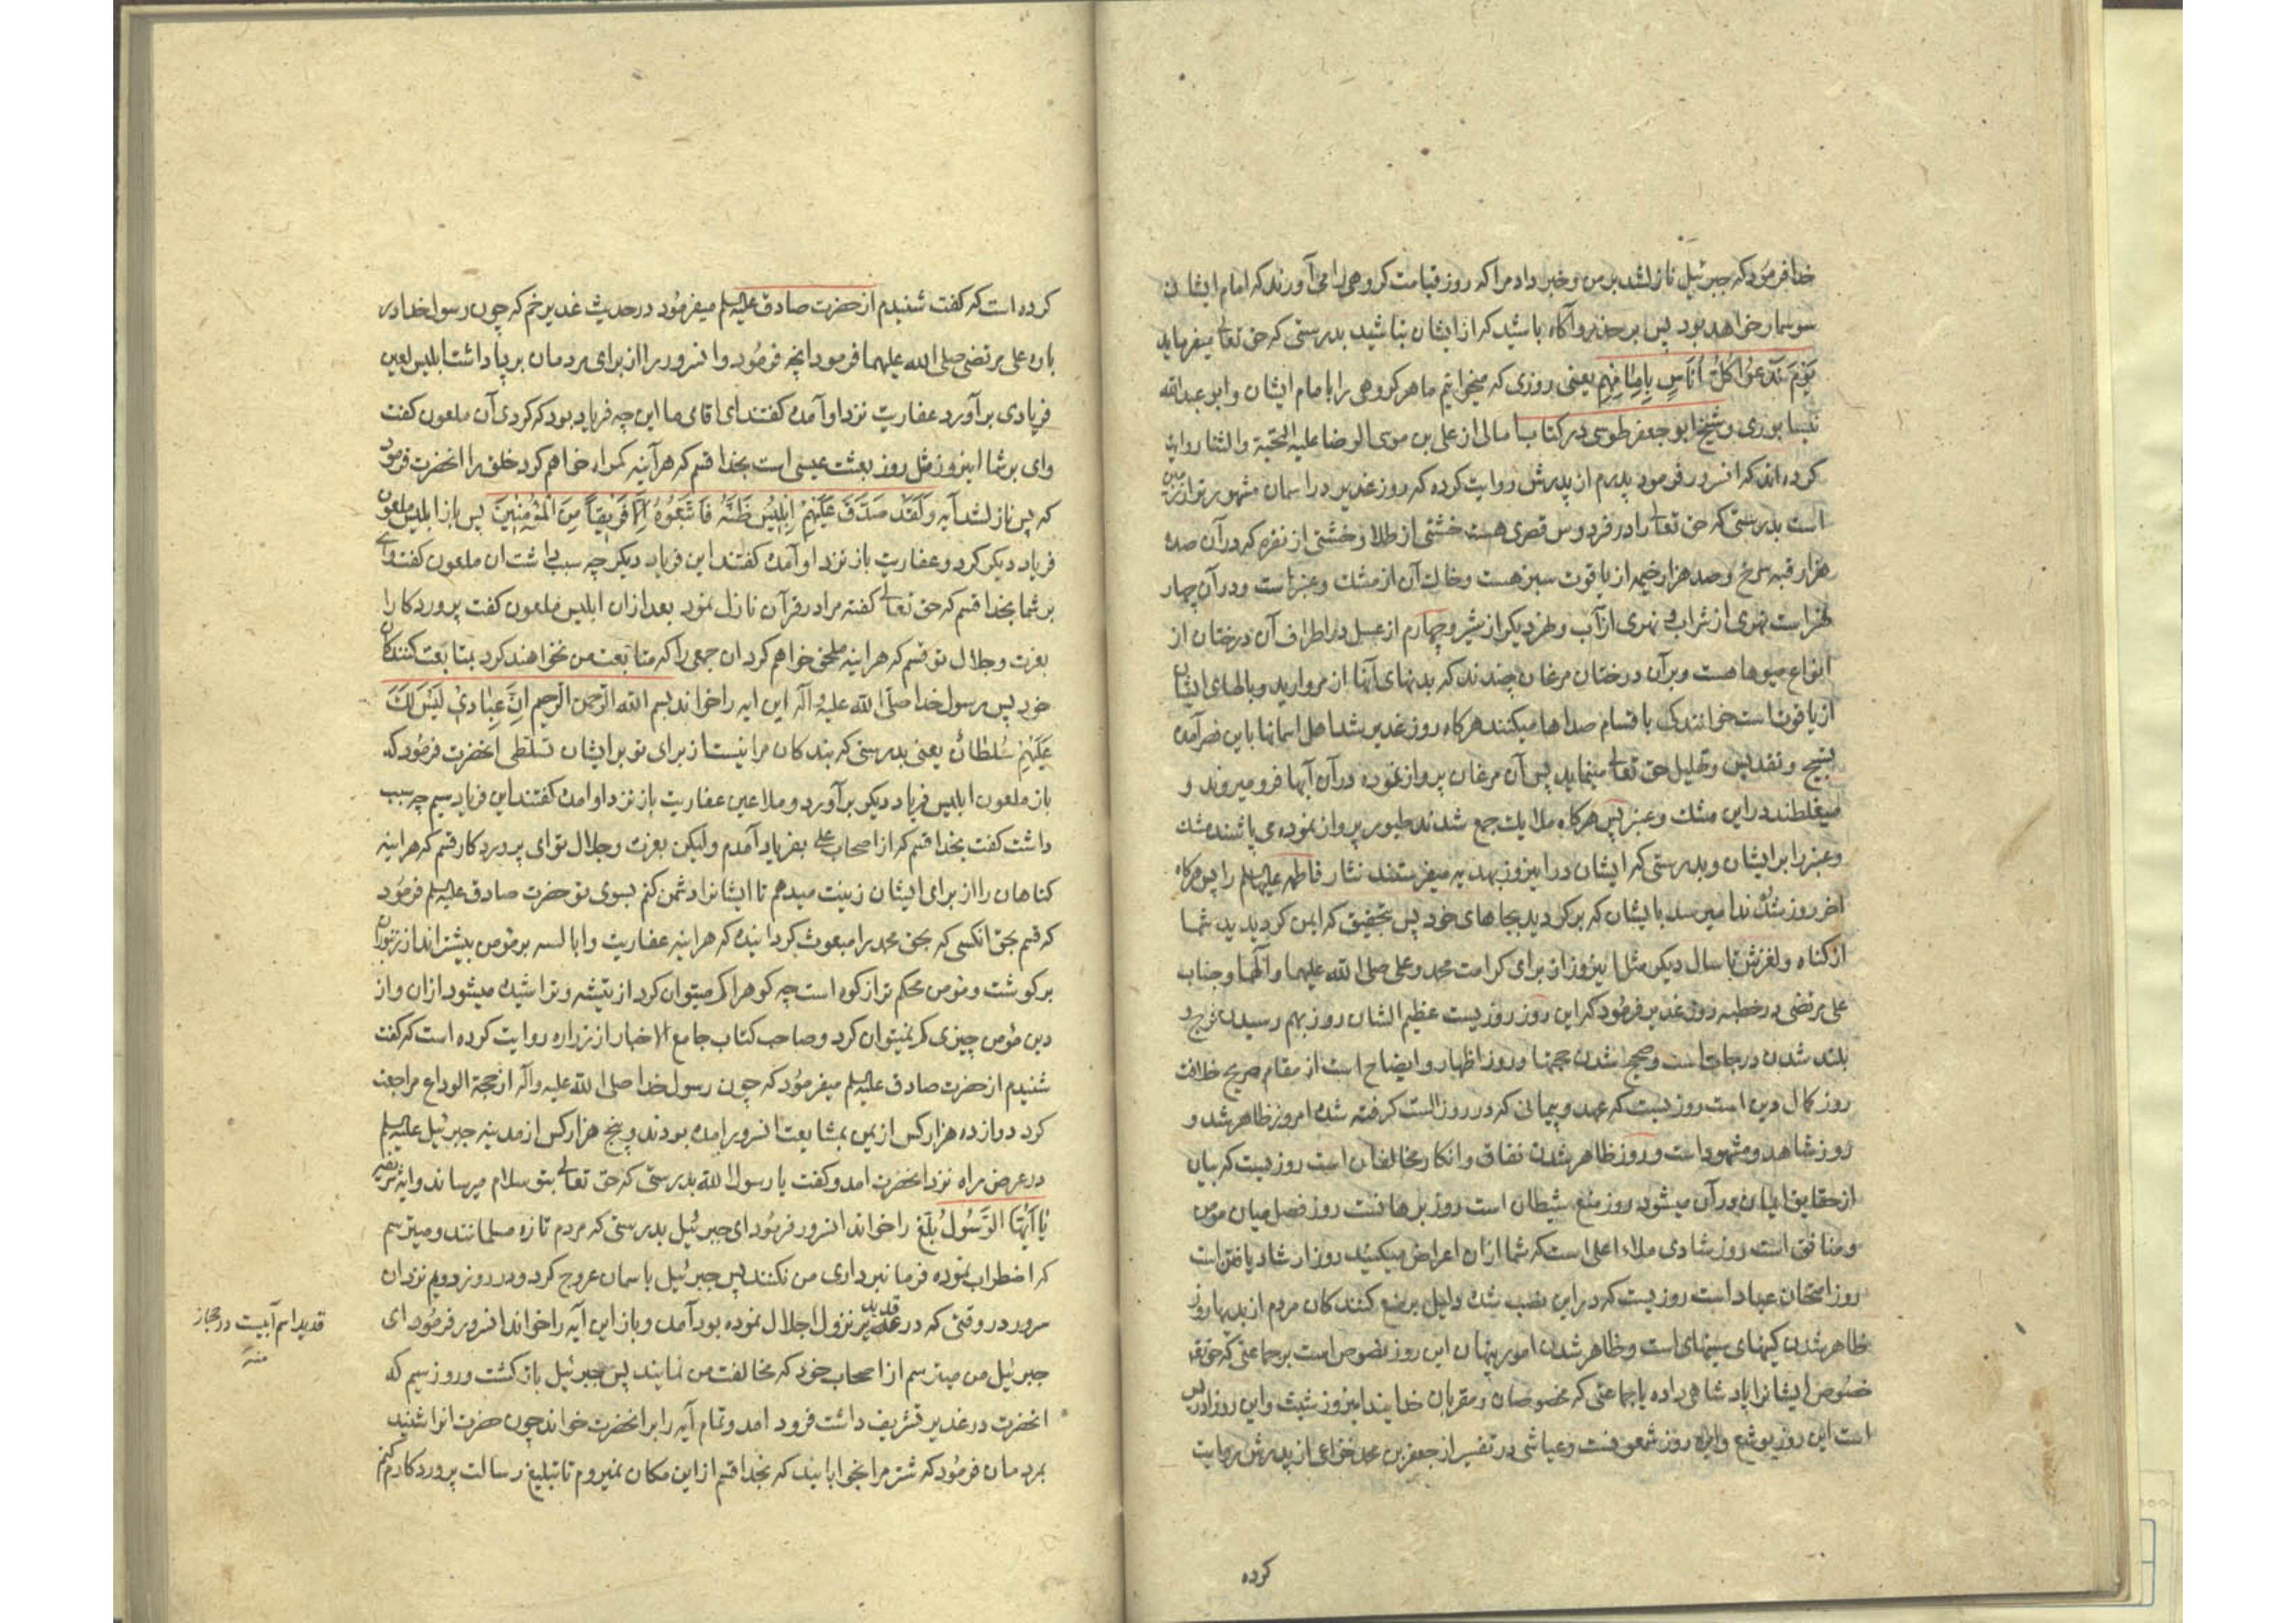 خدا فرمود که جبرئیل نازل شد بر من و خبر داد مرا که روز قیامت گروهی را می آورند که امام ایشان
سوسمار خواهد بود پس بر حذر و آگاه باشید که از ایشان نباشید بدرستی که حق تعالی میفرماید
یَوْمَ نَدْعُوا كُلَّ أُنَاسٍ بِإِمَامِهِمْ یعنی روزی که میخوانیم ما هر گروهی را با امام ایشان و ابو عبدالله
نیسابوری و شیخ ابو جعفر طوسی در کتاب امالی از علی بن موسی الرضا علیه التحیة والثنا روایت
کرده اند که انسرور فرمود پدرم از پدرش روایت کرده که روز غدیر در اسمان مشهورتر از زمین
است بدرستی که حق تعالی را در فردوس قصری هست خشتی از طلا و خشتی از نقره که در آن صد
هزار قبه سرخ و صد هزار خیمه از یاقوت سبز هست و خاك آن از مشك و عنبر است و در آن چهار
نهر است نهری از شراب و نهری از آب و نهر دیگر از شیر و چهارم از عسل در اطراف آن درختان از
انواع میوها هست و بر آن درختان مرغان چندند که بدنهای آنها از مروارید و بالهای ایشان
از یاقوت است خوانندگی باقسام صداها میکنند هرکاه روز غدیر شد اهل اسمانها باین قصر آمده
تسبیح و تقدیس و تهلیل حق تعالی مینماید پس آن مرغان پرواز نموده در آن آبها فرو میروند و
میغلطند در این مشك و عنبر پس هرکاه ملایك جمع شدند طیور پرواز نموده می پاشند مشك
و عنبر را بر ایشان و بدرستی که ایشان در اینروز بهدیه میفرستند نثار فاطمه علیها السلم را پس هرکاه
اخر روز شد ندا میرسد بایشان که برکردید بجاهای خود پس بتحقیق که ایمن کردیدید شما
از کناه و لغزش تا سال دیکر مثل اینروز از برای کرامت محمد و علی صلی الله علیهما وآلهما و جناب
علی مرتضی در خطبه روز غدیر فرمود که این روز روزیست عظیم الشان روز بهم رسیدن فرج و
بلند شدن درجات است و صحیح شدن حجتها و روز اظهار و ایضاح است از مقام صریح خلافت
روز کمال دین است روزیست که عهد و پیمانی که در روز الست کرفته شده امروز ظاهر شد و
روز شاهد و مشهود است و روز ظاهر شدن نفاق و انکار مخالفان است روزیست که بیان
از حقایق ایمان در آن میشود روز منع شیطان است روز برهانست روز فصل میان مومن
و منافق است روز شادی ملاء اعلی است که شما از ان اعراض میکنید روز ارشاد یافتن است
روز امتحان عباد است روزیست که در این نصب شده دلیل بر منع کنندکان مردم از بدیها روز
ظاهر شدن کینهای سینهای است و ظاهر شدن امور پنهان این روز نصوص است بر جماعتی که حق تعالی
خصوص ایشانرا پادشاهی داده یا جماعتی که مخصوصان و مقربان خدایند اینروز شیث و این روز ادریس
است این روز یوشع و این روز شمعونست و عیاشی در تفسیر از جعفر بن محمد خزاعی از پدرش روایت
کرده
کرده است که کفت شنیدم از حضرت صادق علیه السلم میفرمود در حدیث غدیر خم که چون رسول خدا در
باره علی مرتضی صلی الله علیهما فرمود انچه فرمود و انسرور را از برای مردمان برپا داشت ابلیس لعین
فریادی برآورد عفاریت نزد او آمده کفتند ای اقای ما این چه فریاد بود که کردی آن ملعون کفت
وای بر شما اینروز مثل روز بعثت عیسی است بخدا قسم که هرآینه کمراه خواهم کرد خلق را انحضرت فرمود
که پس نازل شد آیه وَلَقَدْ صَدَّقَ عَلَيْهِمْ إِبْلِيسُ ظَنَّهُ فَاتَّبَعُوهُ إِلَّا فَرِيقاً مِنَ الْمُؤْمِنِينَ پس باز ابلیس ملعون
فریاد دیکر کرد و عفاریت باز نزد او آمده کفتند این فریاد دیکر چه سبب داشت ان ملعون کفت وای
بر شما بخدا قسم که حق تعالی کفته مرا در قرآن نازل نمود بعد از ان ابلیس ملعون کفت پروردکارا
بعزت و جلال تو قسم که هراینه ملحق خواهم کرد ان جمعی را که متابعت من نخواهند کرد بمتابعت کنندکان
خود پس رسول خدا صلی الله علیه وآله این ایه را خواند بسم الله الرحمن الرحیم إِنَّ عِبَادِي لَيْسَ لَكَ
عَلَيْهِمْ سُلْطَانٌ یعنی بدرستی که بندکان مرا نیست از برای تو بر ایشان تسلطی انحضرت فرمود که
باز ملعون ابلیس فریاد دیکر برآورد و ملاعین عفاریت باز نزد او امده کفتند این فریاد سیم چه سبب
داشت کفت بخدا قسم که از اصحاب علی بفریاد آمدم ولیکن بعزت و جلال تو ای پروردکار قسم که هراینه
کناهان را از برای ایشان زینت میدهم تا ایشانرا دشمن کنم بسوی تو حضرت صادق علیه السلم فرمود
که قسم بحق انکسی که بحق محمد را مبعوث کردانیده که هراینه عفاریت و ابالسه بر مومن بیشتراند از زنبوران
بر کوشت و مومن محکم تر از کوه است چه کوه را کم میتوان کرد از تیشه و تراشیده میشود از ان و از
دین مومن چیزی کم نمیتوان کرد و صاحب کتاب جامع الاخبار از زراره روایت کرده است که کفت
شنیدم از حضرت صادق علیه السلم میفرمود که چون رسول خدا صلی الله علیه وآله از حجة الوداع مراجعت
کرد دوازده هزار کس از یمن بمشایعت انسرور امده بودند و پنج هزار کس از مدینه جبرئیل علیه السلم
در عرض راه نزد انحضرت امد و کفت یا رسول الله بدرستی که حق تعالی بتو سلام میرساند و ایه شریفه
یَا أَيُّهَا الرَّسُولُ بَلِّغْ را خواند انسرور فرمود ای جبرئیل بدرستی که مردم تازه مسلمانند و میترسم
که اضطراب نموده فرمانبرداری من نکنند پس جبرئیل باسمان عروج کرد و در روز دویم نزد ان
سرور در وقتی که در غدیر قدید نزول اجلال نموده بود آمده و باز این آیه را خواند انسرور فرمود ای
جبرئیل من میترسم از اصحاب خود که مخالفت من نمایند پس جبرئیل باز کشت و روز سیم که
انحضرت در غدیر تشریف داشت فرود امد و تمام آیه را بر انحضرت خواند چون حضرت انرا شنید
بمردمان فرمود که شتر مرا بخوابانید که بخدا قسم از این مکان نمیروم تا تبلیغ رسالت پروردکارم کنم
قدید اسم آبیست در حجاز
منه